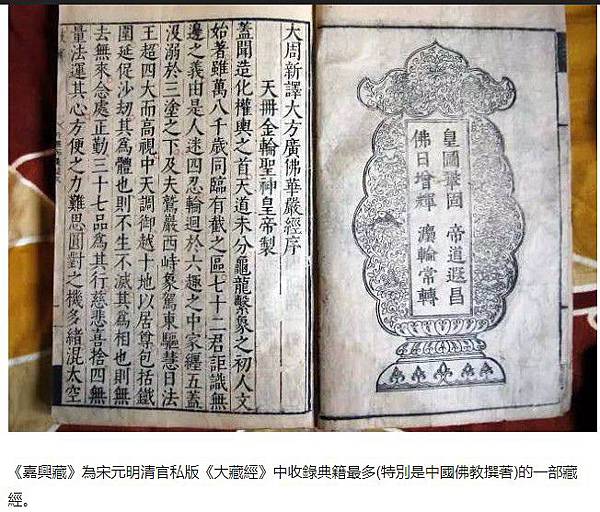 皇圖鞏固 帝道遐昌
佛日增輝 灋輪常轉
大周新譯大方廣佛華嚴經序
天冊金輪聖神皇帝製
蓋聞造化權輿之首天道未分龜龍繫象之初人文
始著雖萬八千歲同臨有截之區七十二君詎識無
邊之義由是人迷四忍輪迴於六趣之中家纏五蓋
沒溺於三塗之下及夫鷲巖西峙象駕東驅慧日法
王超四大而高視中天調御越十地以居尊包括鐵
圍延促沙劫其爲體也則不生不滅其爲相也則無
去無來念處正勤三十七品爲其行慈悲喜捨四無
量法運其心方便之力難思圓對之機多緒混太空
《嘉興藏》為宋元明清官私版《大藏經》中收錄典籍最多(特別是中國佛教撰著)的一部藏
經。